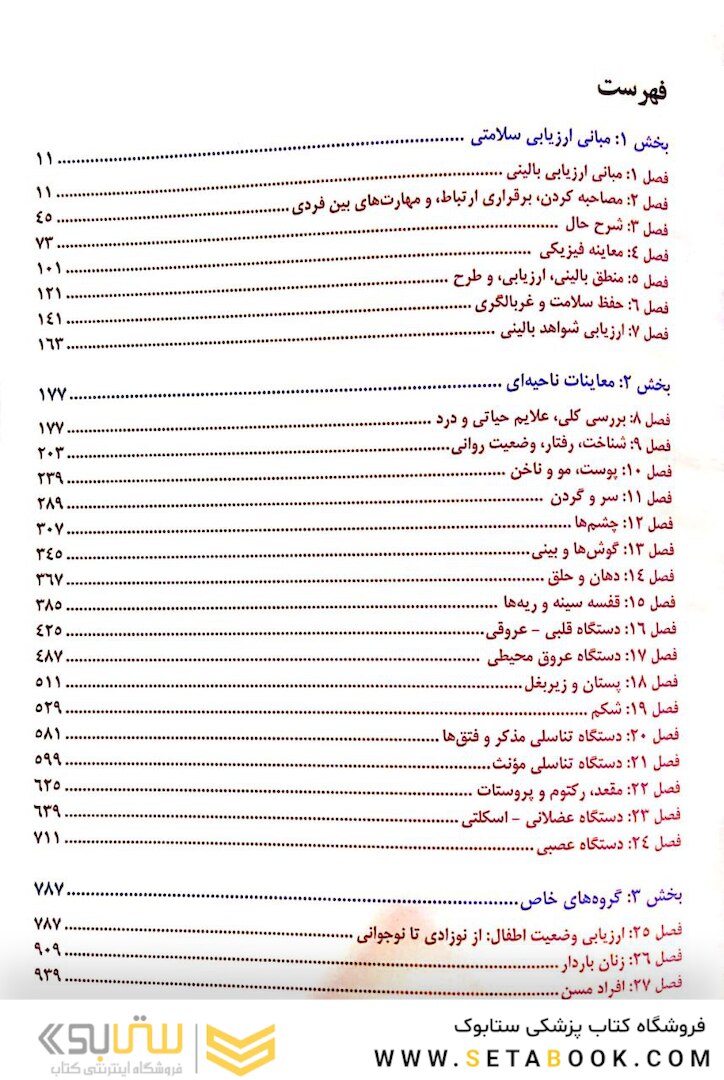 فهرست
بخش ۱: مبانی ارزیابی سلامتی ........ ۱۱
فصل ۱: مبانی ارزیابی بالینی ........ ۱۱
فصل ۲: مصاحبه کردن، برقراری ارتباط، و مهارت‌های بین فردی ........ ۴۵
فصل ۳: شرح حال ........ ۷۳
فصل ۴: معاینه فیزیکی ........ ۱۰۱
فصل ۵: منطق بالینی، ارزیابی، و طرح ........ ۱۲۱
فصل ۶: حفظ سلامت و غربالگری ........ ۱۴۱
فصل ۷: ارزیابی شواهد بالینی ........ ۱۶۳
بخش ۲: معاینات ناحیه‌ای ........ ۱۷۷
فصل ۸: بررسی کلی، علایم حیاتی و درد ........ ۱۷۷
فصل ۹: شناخت، رفتار، وضعیت روانی ........ ۲۰۳
فصل ۱۰: پوست، مو و ناخن ........ ۲۳۹
فصل ۱۱: سر و گردن ........ ۲۸۹
فصل ۱۲: چشم‌ها ........ ۳۰۷
فصل ۱۳: گوش‌ها و بینی ........ ۳۴۵
فصل ۱۴: دهان و حلق ........ ۳۶۷
فصل ۱۵: قفسه سینه و ریه‌ها ........ ۳۸۵
فصل ۱۶: دستگاه قلبی - عروقی ........ ۴۲۵
فصل ۱۷: دستگاه عروق محیطی ........ ۴۸۷
فصل ۱۸: پستان و زیربغل ........ ۵۱۱
فصل ۱۹: شکم ........ ۵۲۹
فصل ۲۰: دستگاه تناسلی مذکر و فتق‌ها ........ ۵۸۱
فصل ۲۱: دستگاه تناسلی مؤنث ........ ۵۹۹
فصل ۲۲: مقعد، رکتوم و پروستات ........ ۶۲۵
فصل ۲۳: دستگاه عضلانی - اسکلتی ........ ۶۳۹
فصل ۲۴: دستگاه عصبی ........ ۷۱۱
بخش ۳: گروه‌های خاص ........ ۷۸۷
فصل ۲۵: ارزیابی وضعیت اطفال: از نوزادی تا نوجوانی ........ ۷۸۷
فصل ۲۶: زنان باردار ........ ۹۰۹
فصل ۲۷: افراد مسن ........ ۹۳۹
فروشگاه کتاب پزشکی ستابوک
WWW.SETABOOK.COM
ستابوک
فروشگاه اینترنتی کتاب